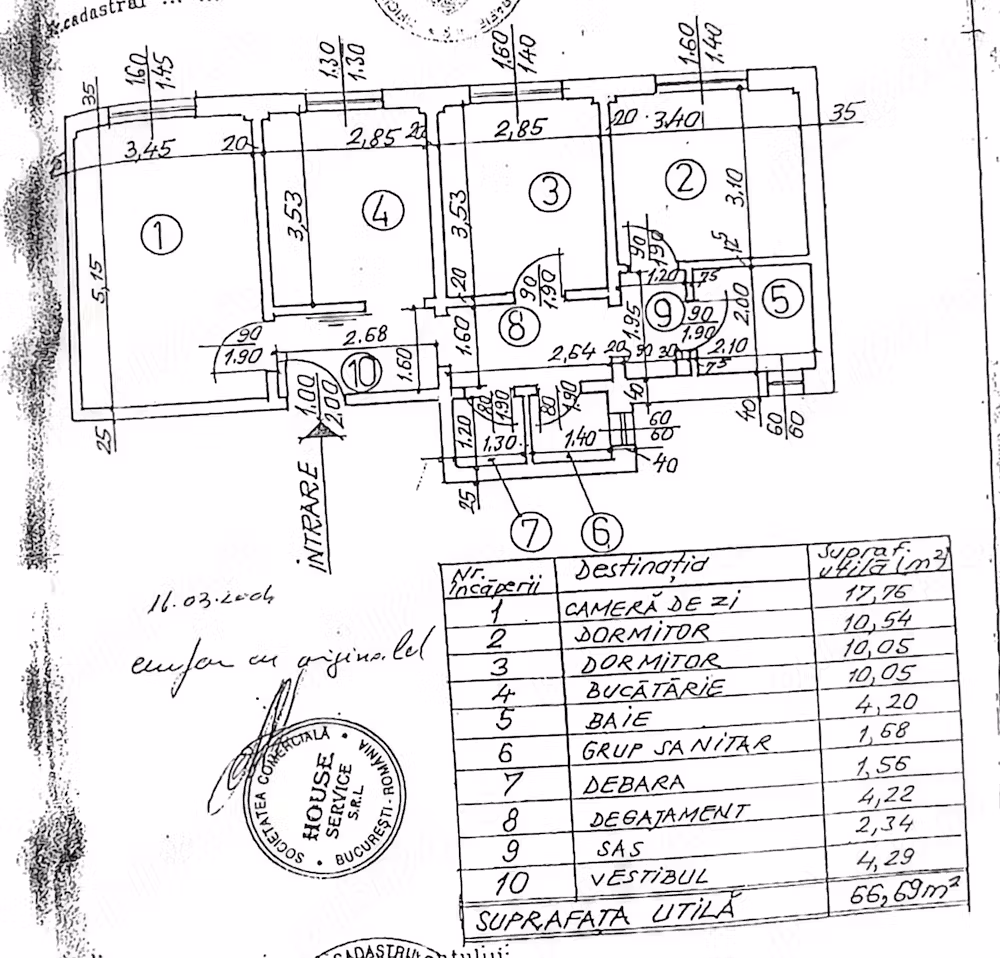 cadastral
35
1.60
1.45
1.30
1.30
1.60
1.40
1.60
1.40
3,45
20
2,85
20
2,85
20
3.40
35
1
5,15
3,53
4
3,53
3
2
3.10
12,5
90
1.90
20
90
1.90
1.20
75
9
90
1.90
2.00
5
90
1.90
2.68
10
1.60
1.60
8
2,64
20
90
30
1.95
2.10
75
1.00
2.00
25
1.20
80
1.90
80
1.90
1.30
1.40
40
60
60
40
40
60
60
25
INTRARE
7
6
Nr. încăperii Destinația Supraf. utilă (m²)
1 CAMERĂ DE ZI 17,76
2 DORMITOR 10,54
3 DORMITOR 10,05
4 BUCĂTĂRIE 10,05
5 BAIE 4,20
6 GRUP SANITAR 1,68
7 DEBARA 1,56
8 DEGAJAMENT 4,22
9 SAS 2,34
10 VESTIBUL 4,29
SUPRAFAȚA UTILĂ 66,69 m²
16.03.2004
conform cu originalul
SOCIETATEA COMERCIALĂ • BUCUREȘTI-ROMÂNIA •
HOUSE
SERVICE
S.R.L
CADASTRU